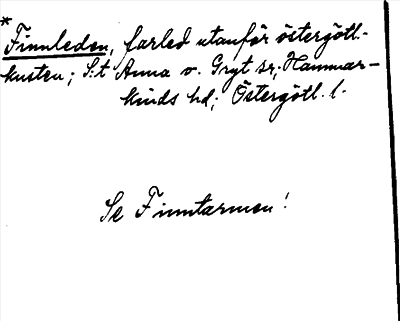 *
Finnleden, farled utanför östergötl.-
kusten; S:t Anna o. Gryt sr; Hammar-
kinds hd; Östergötl. l.
Se Finntarmen!